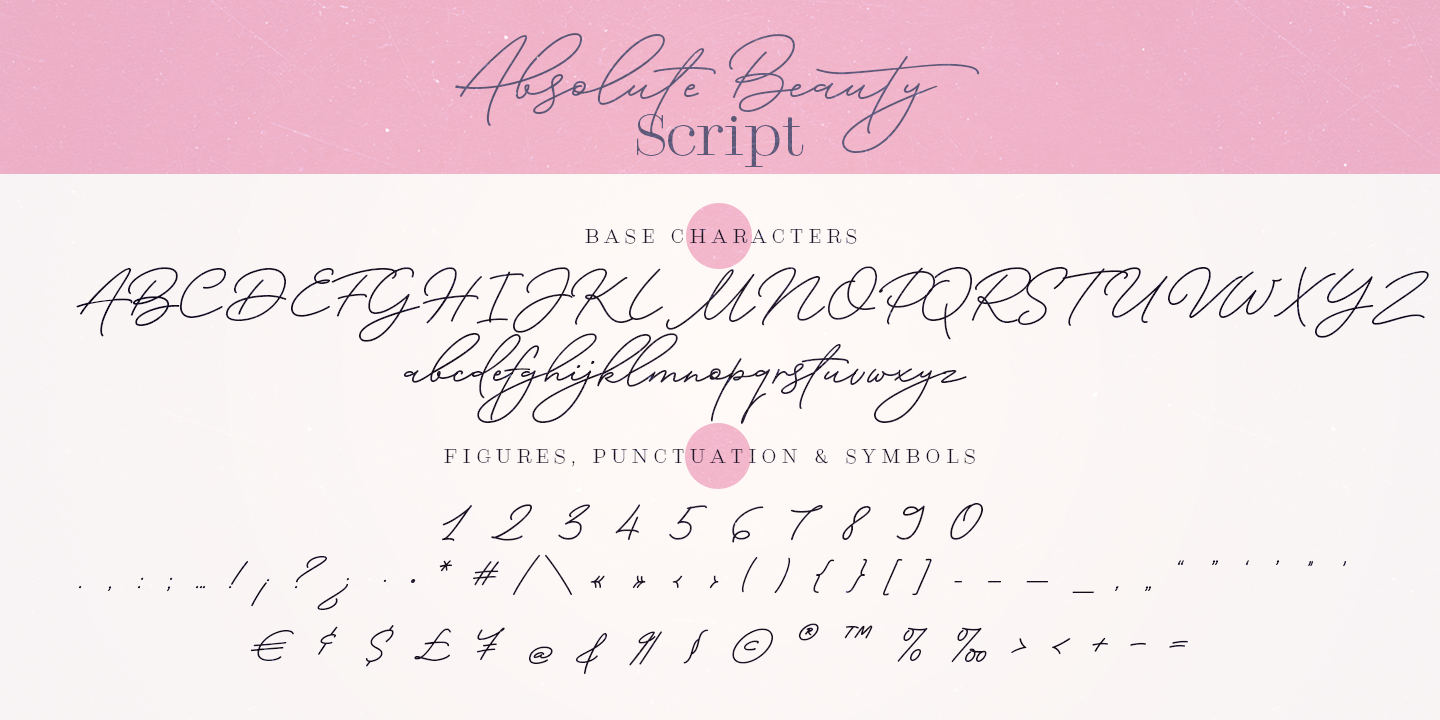 Absolute Beauty
Script
BASE CHARACTERS
ABCDEFGHIJKLMNOPQRSTUVWXYZ
abcdefghijklmnopqrstuvwxyz
FIGURES, PUNCTUATION & SYMBOLS
1 2 3 4 5 6 7 8 9 0
. , : ; … ! ¡ ? ¿ · • * # / \ « » ‹ › ( ) { } [ ] - – — _ ‚ „ “ ” ‘ ’ " '
€ ¢ $ £ ¥ @ & ¶ § © ® ™ % ‰ > < + − =